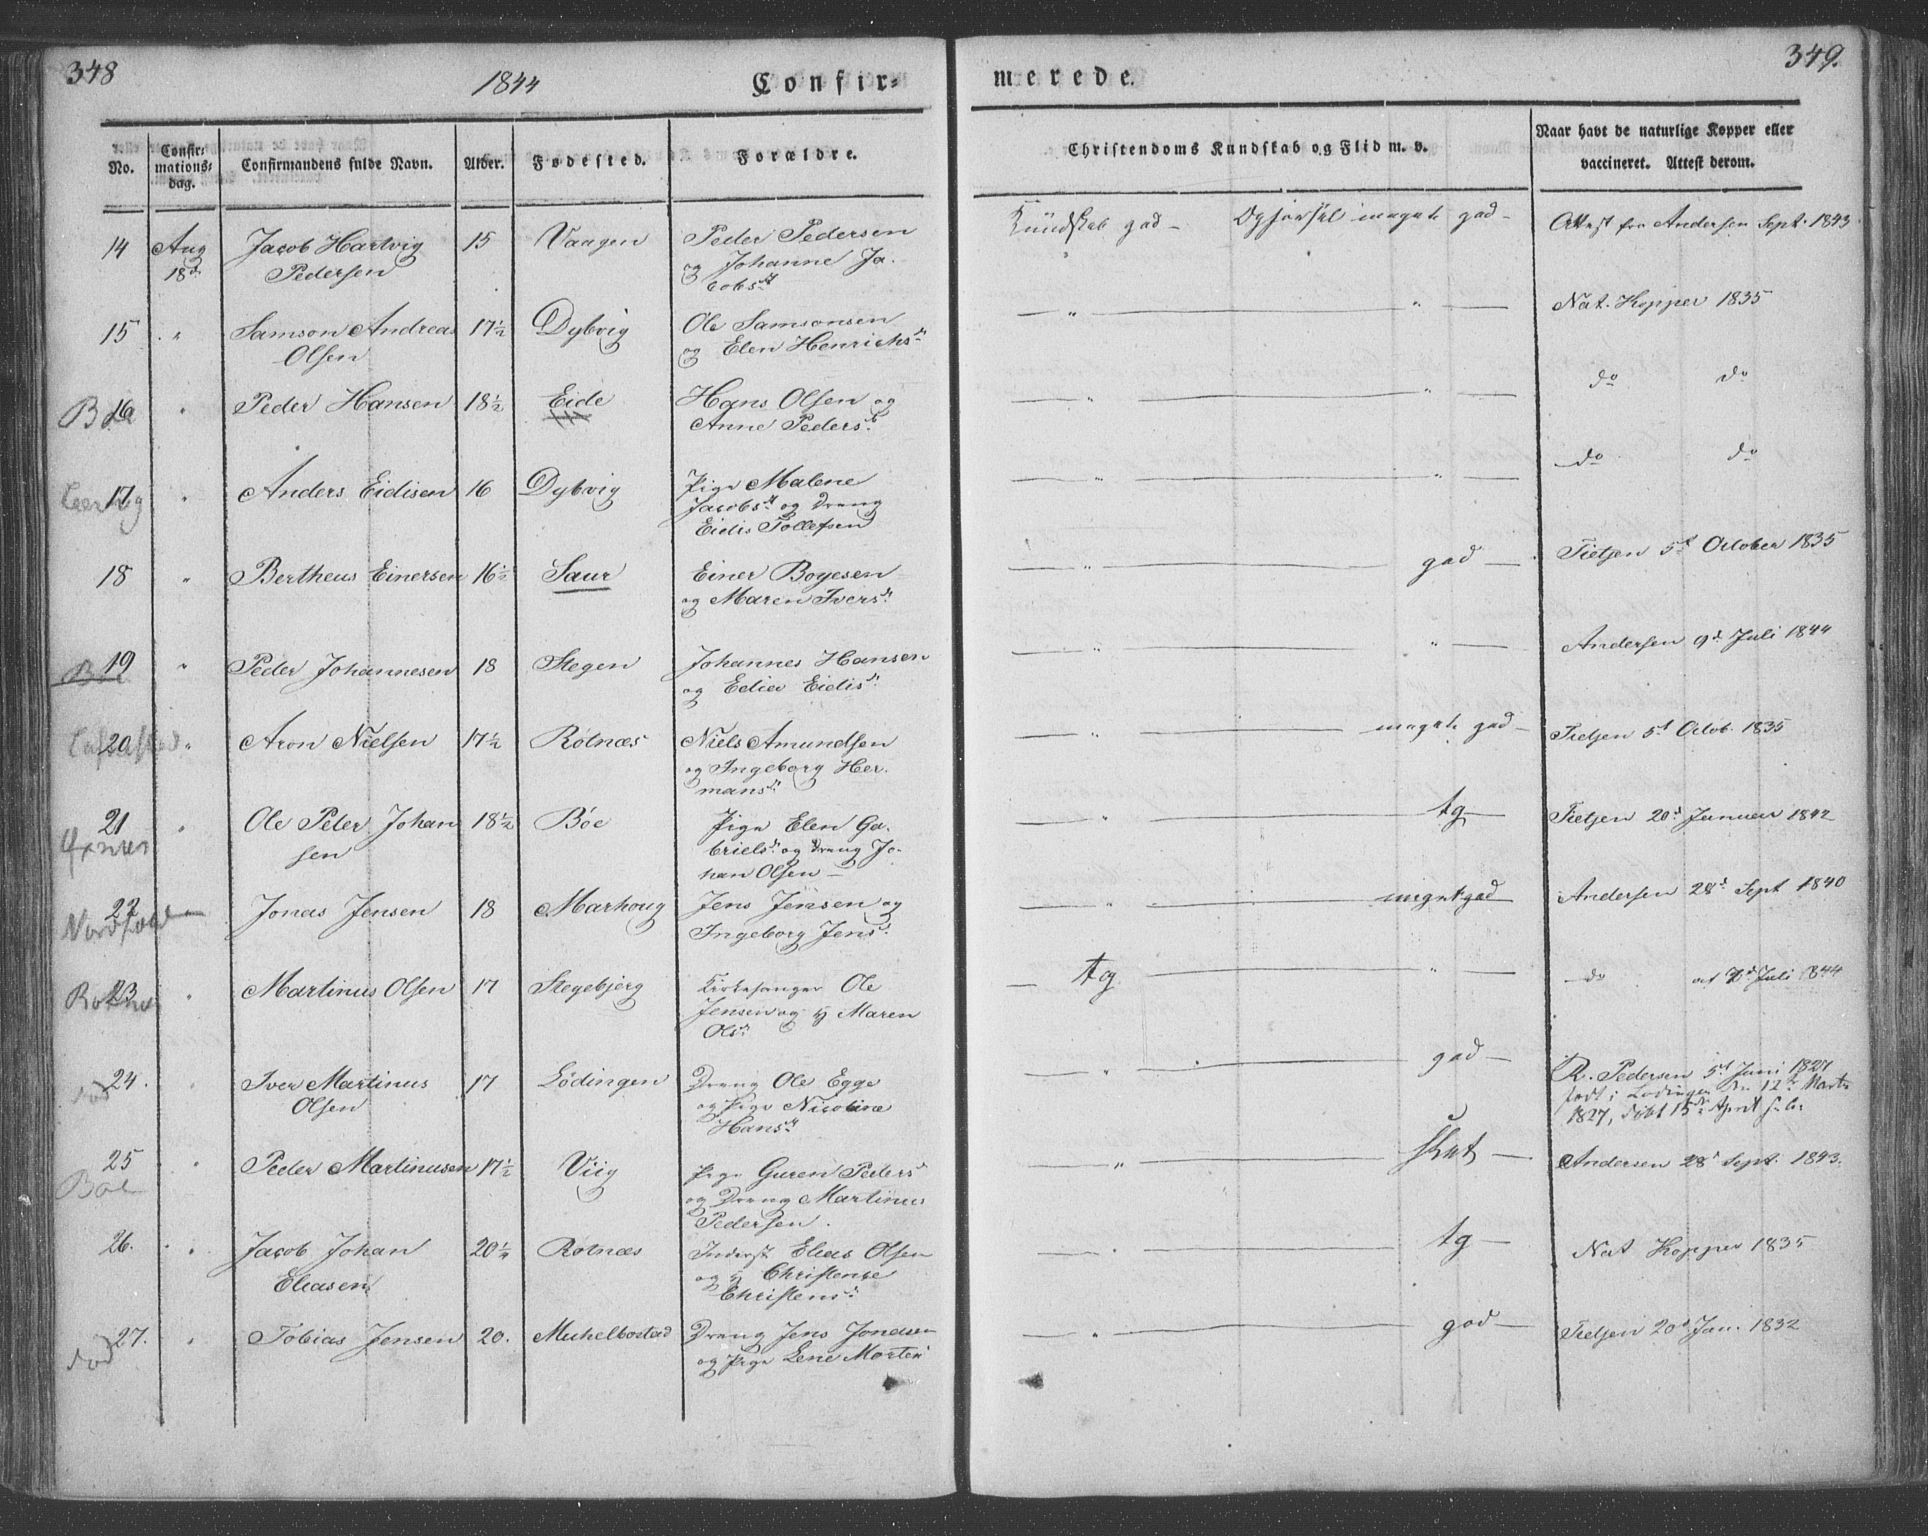 348
1844
Confir=
No.
Confir-
mations-
dag.
Confirmandens fulde Navn.
Alder.
Fødested.
Forældre.
14 Aug 18d Jacob Hartvig 15 Vaagen Peder Pedersen
Pedersen og Johanne Ja-
cobsd
15 " Samson Andreas 17½ Dybvig Ole Samsonsen
Olsen og Elen Henrichsd
16 " Peder Hansen 18½ Eide Hans Olsen og
Anne Pedersd
17 " Anders Eidisen 16 Dybvig Pige Malene
Jacobsd og Dreng
Eidis Tollefsen
18 " Bertheus Einersen 16½ Saur Einer Boyesen
og Maren Iversd
19 " Peder Johannesen 18 Stegen Johannes Hansen
og Edier Eidisd
20 " Aron Nielsen 17½ Rotnæs Niels Amundsen
og Ingeborg Her-
mansd
21 " Ole Peter Johan 18½ Böe Pige Elen Ga-
sen brielsd og Dreng Jo-
han Olsen —
22 Jonas Jensen 18 Marhoug Jens Jensen og
Ingeborg Jensd
23 " Martinus Olsen 17 Stegebjerg Kirkesanger Ole
Jensen og Maren
Olsd
24. " Iver Martinus 17 Lödingen Dreng Ole Egge
Olsen og Pige Nicoline
Hansd
25 " Peder Martinusen 17½ Viig Pige Guren Pedersd
Boe og Dreng Martinus
Pedersen.
26. " Jacob Johan 20¼ Rotnæs Inderst Elias Olsen
Eliasen og Christense
Christensd
27. " Tobias Jensen 20. Michelbostad Dreng Jens Jonasen
og Pige Lene Mortensd
349.
merede.
Christendoms Kundskab og Flid m. v.
Naar havt de naturlige Kopper eller
vaccineret. Attest derom.
Kundskab god — Opførsel meget god — Attest fra Andersen Sept. 1843
— " — " — Nat. Kopper 1835
— " — " — do do
— " — " — do do
— " — god — Tietjen 5d October 1835
— " — " — Andersen 9d Juli 1844
— " — meget god — Tietjen 5d Octob. 1835
— " — tg — Tietjen 20d Januar 1842
— " — meget god Andersen 28d Sept 1840
— tg — " — do Juli 1844
— " — god — R. Pedersen 5d Juni 1827
født i Lodingen den 12te Marts
1827, döbt 15de April s. A.
— " — slet — Andersen 28d Sept. 1843.
— " — tg — Nat Kopper 1835
— " — god — Tietjen 20d Jan. 1832